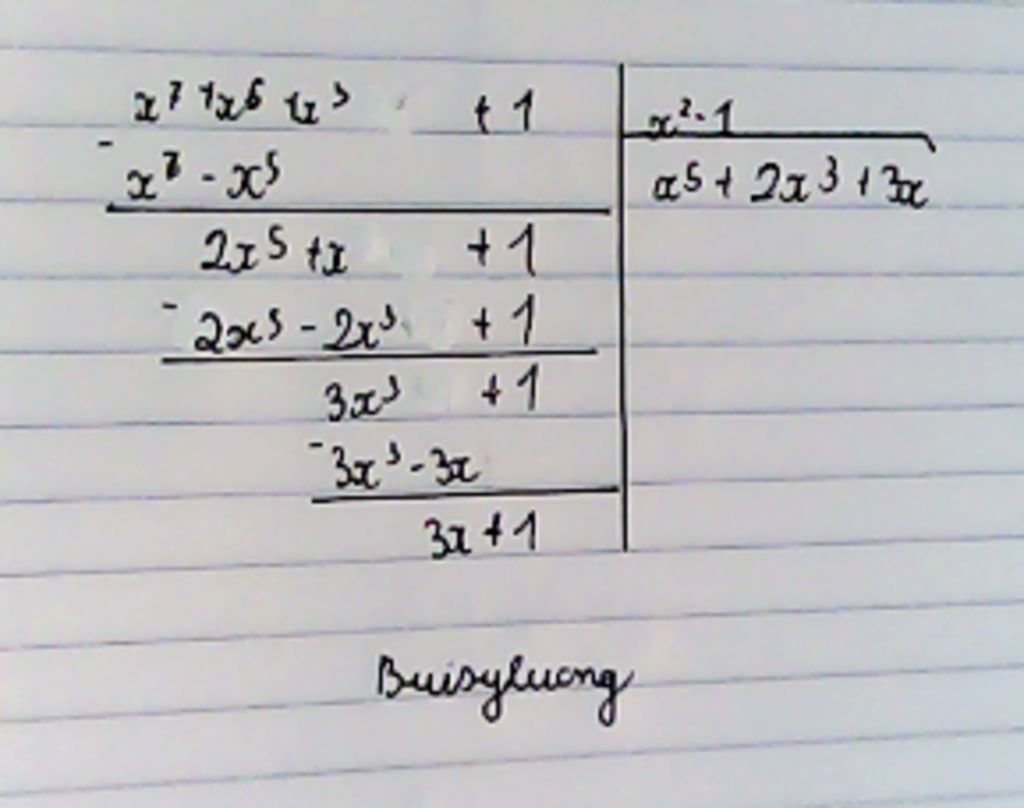 x⁷ + x⁵ + x³ + 1
x² - 1
- x⁷ - x⁵
x⁵ + 2x³ + 3x
2x⁵ + x + 1
- 2x⁵ - 2x³ + 1
3x³ + 1
- 3x³ - 3x
3x + 1
Buisyluong